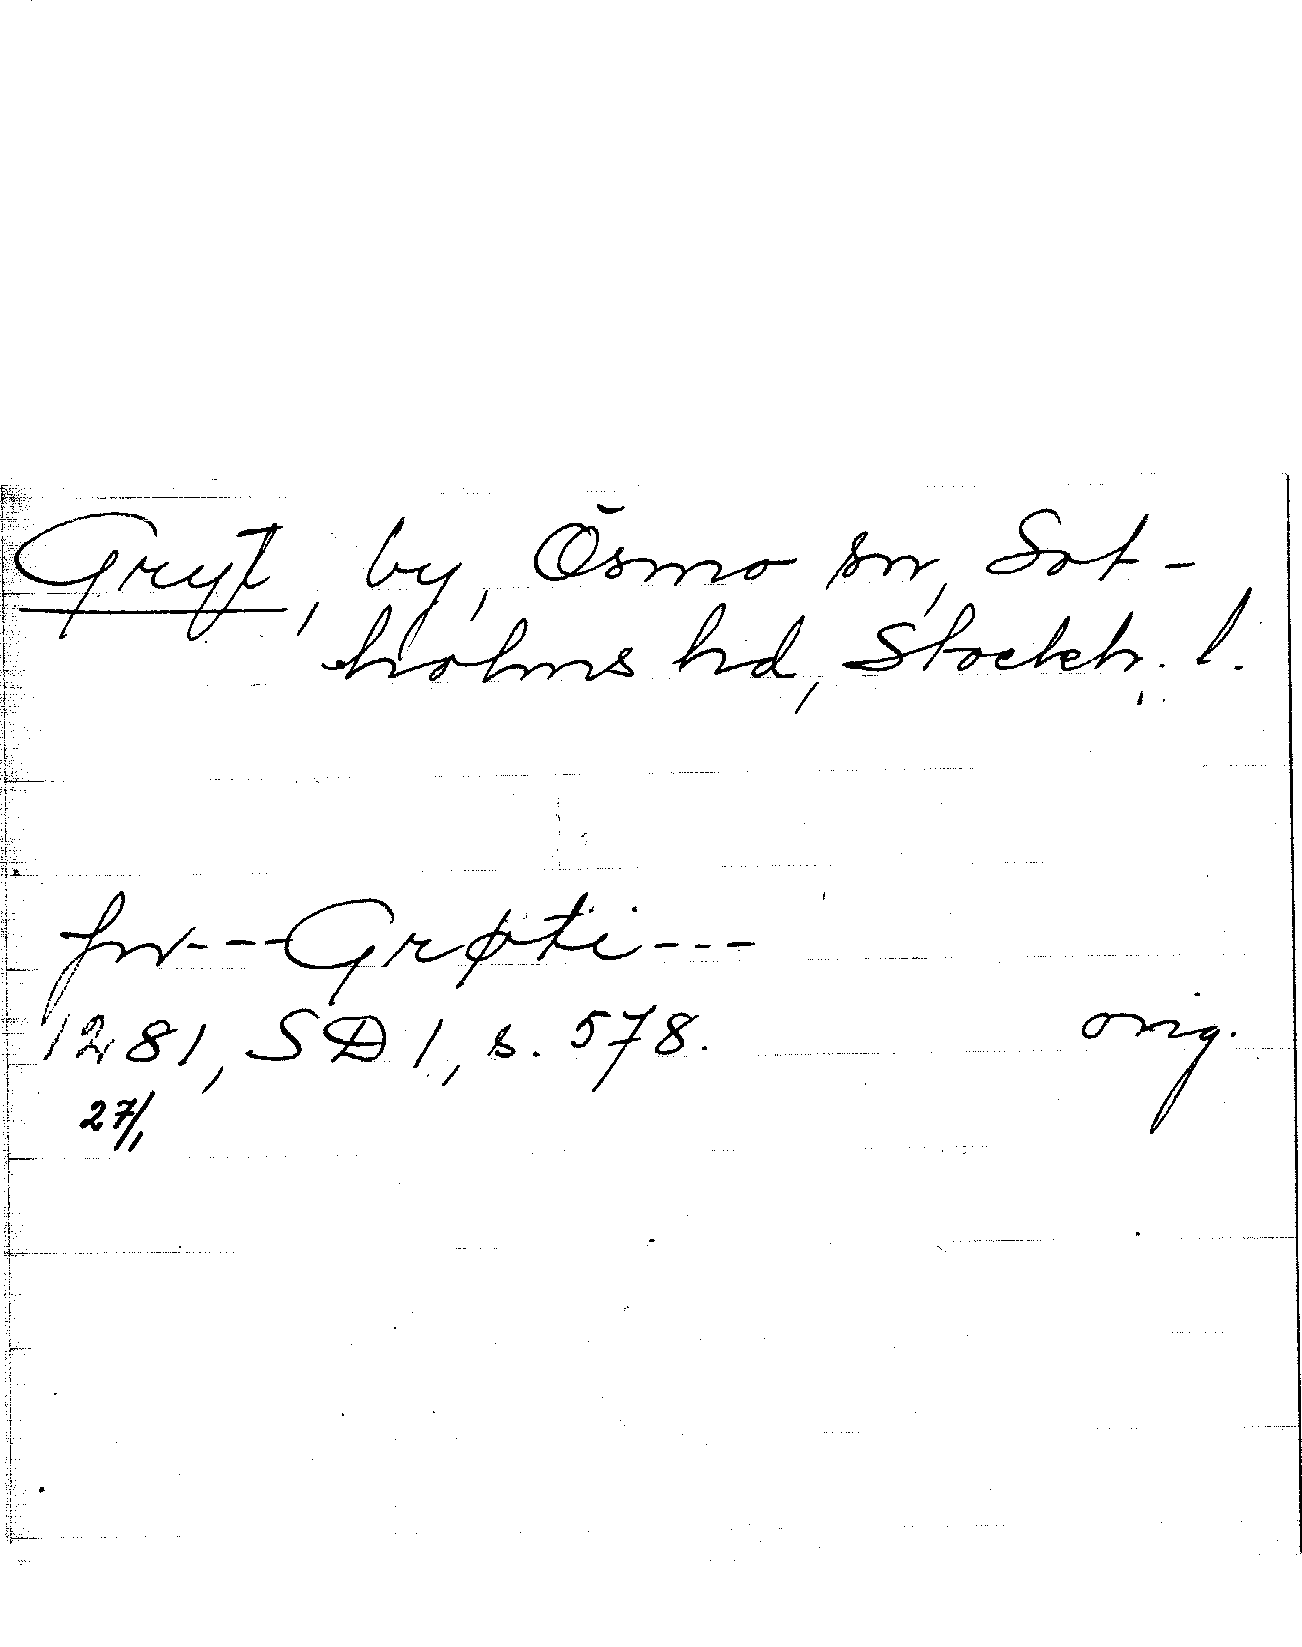 Gryt, by, Ösmo sn, Sot-
holms hd, Stockh. l.
in---Grøti---
1281, SD 1, s. 578. orig.
27/1